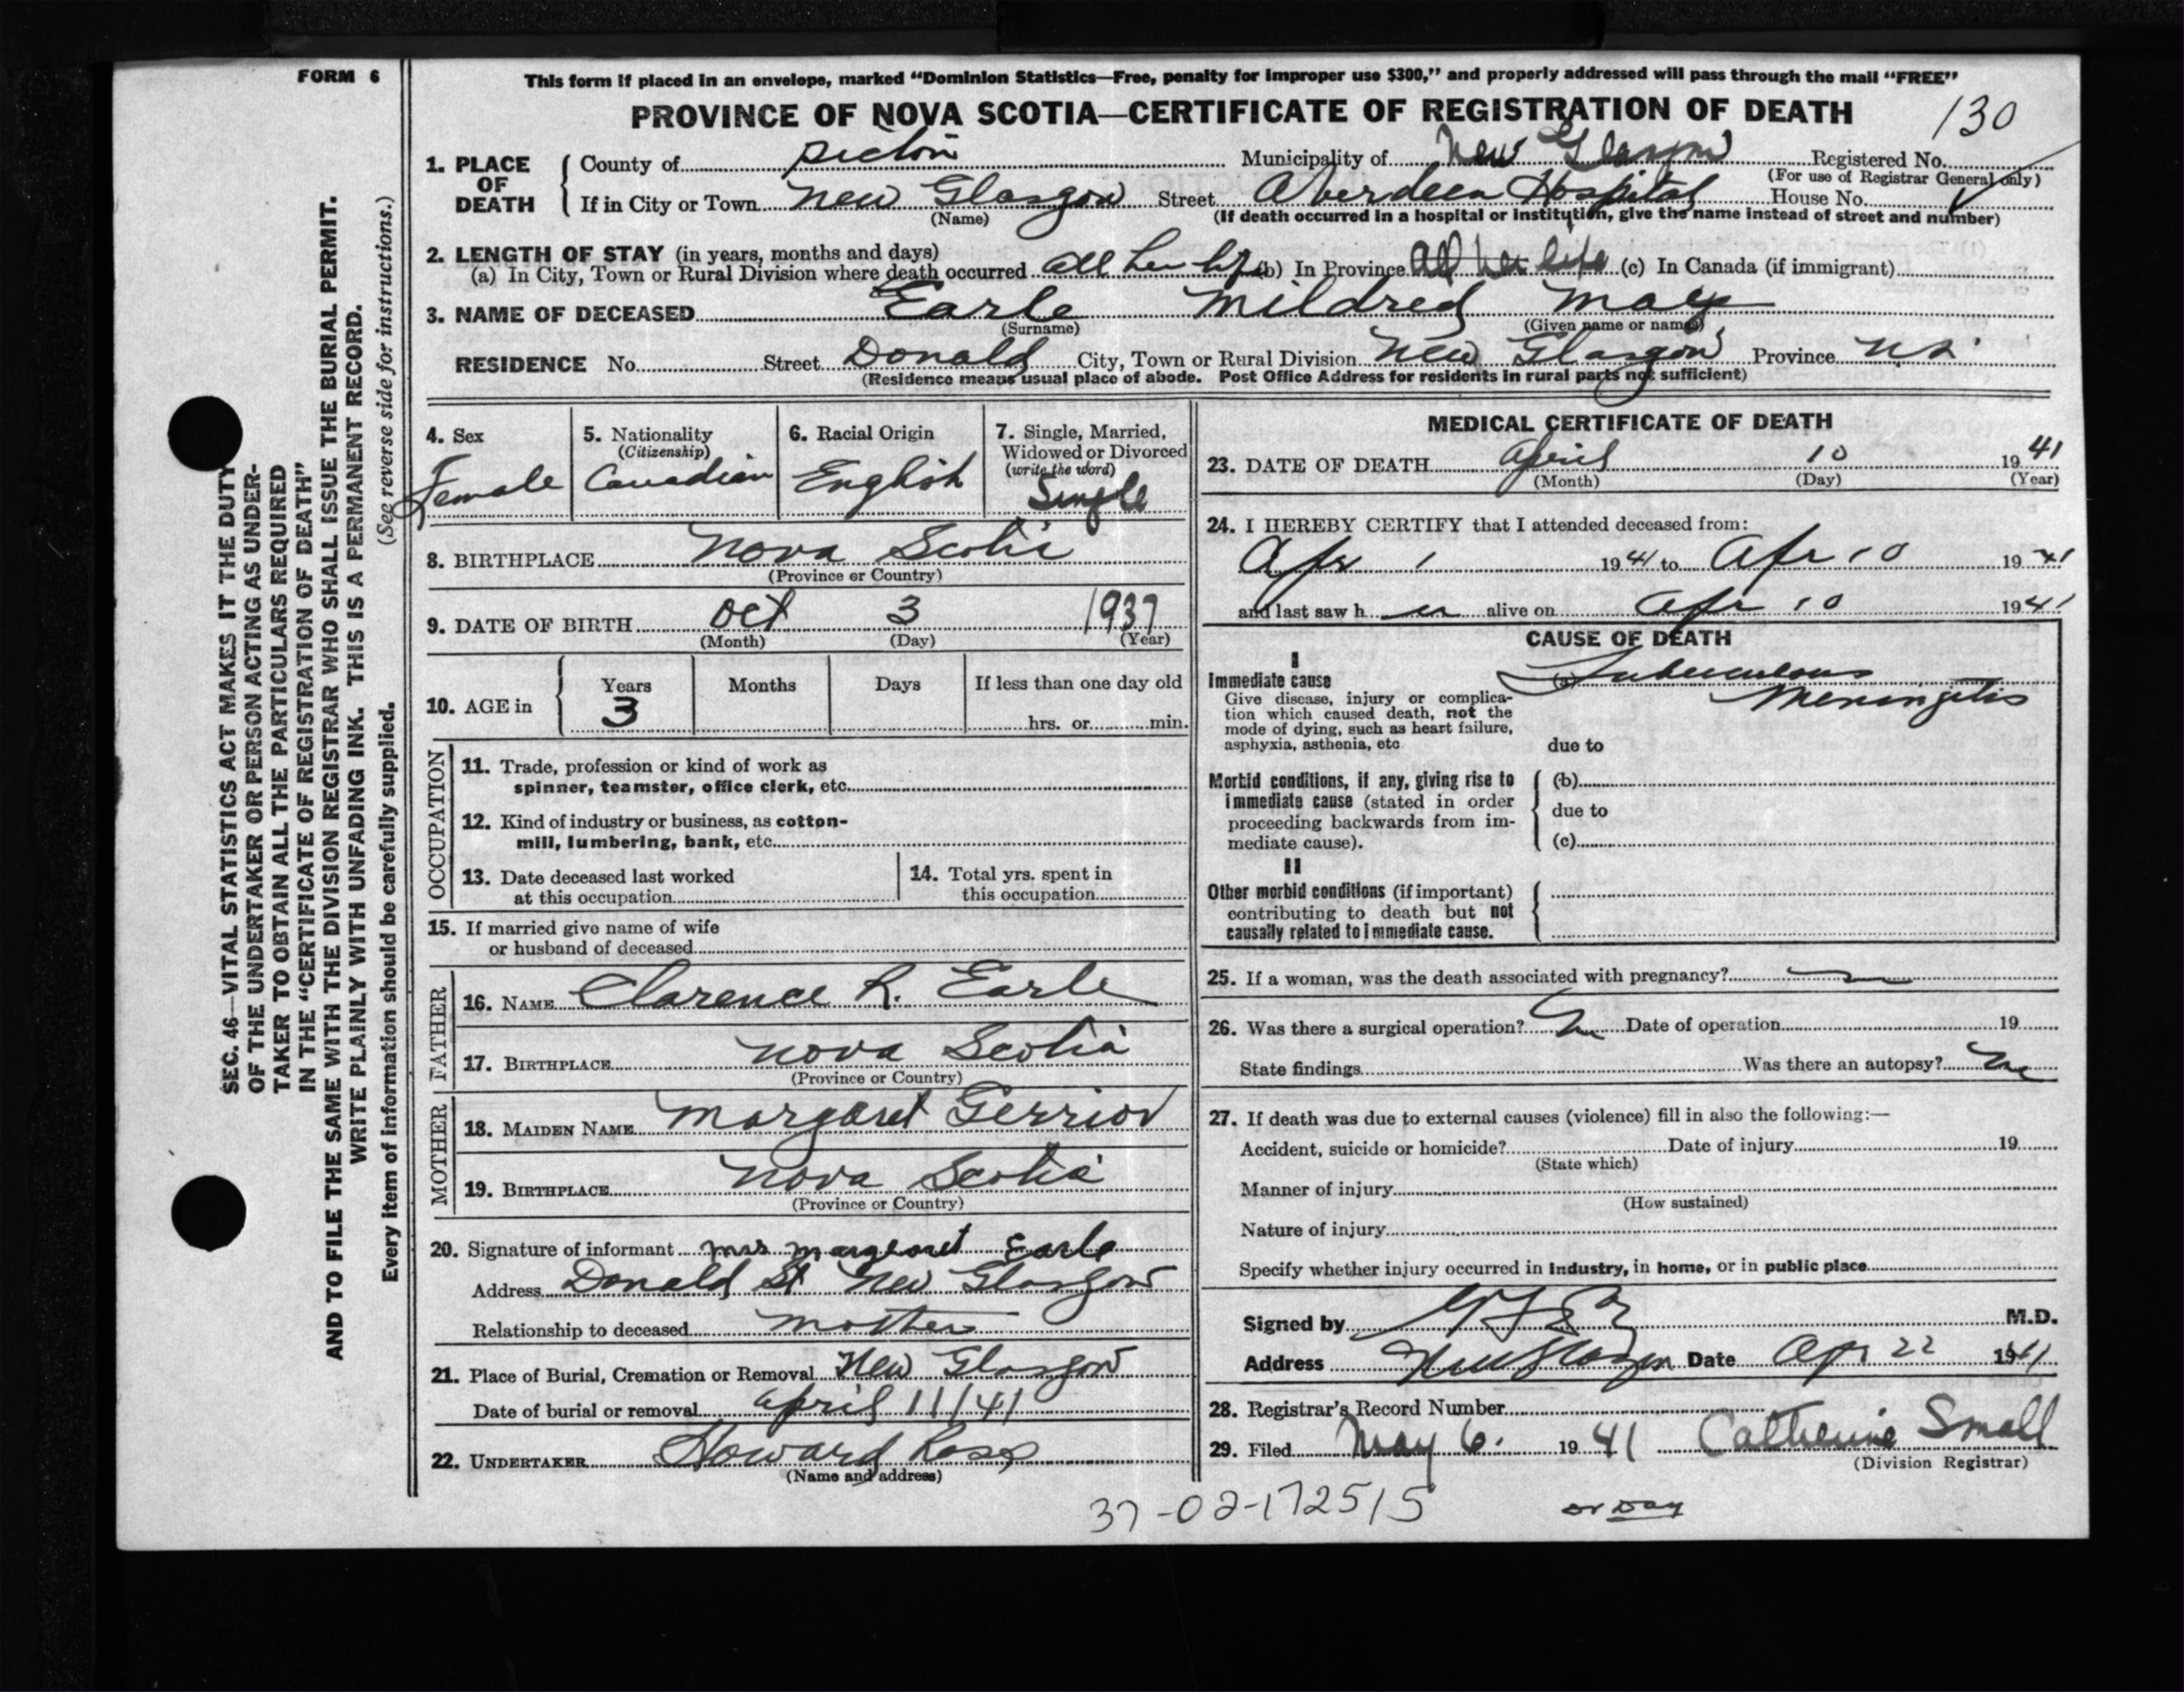 FORM 6
This form if placed in an envelope, marked “Dominion Statistics—Free, penalty for improper use $300,” and properly addressed will pass through the mail “FREE”
PROVINCE OF NOVA SCOTIA—CERTIFICATE OF REGISTRATION OF DEATH
130
1. PLACE OF DEATH
County of Pictou Municipality of New Glasgow Registered No.
(For use of Registrar General only)
If in City or Town New Glasgow Street Aberdeen Hospital House No.
(Name) (If death occurred in a hospital or institution, give the name instead of street and number)
2. LENGTH OF STAY (in years, months and days)
(a) In City, Town or Rural Division where death occurred all her life (b) In Province All her life (c) In Canada (if immigrant)
3. NAME OF DECEASED Earle Mildred May
(Surname) (Given name or names)
RESIDENCE No. Street Donald City, Town or Rural Division New Glasgow Province N.S.
(Residence means usual place of abode. Post Office Address for residents in rural parts not sufficient)
4. Sex
Female
5. Nationality
(Citizenship)
Canadian
6. Racial Origin
English
7. Single, Married,
Widowed or Divorced
(write the word)
Single
8. BIRTHPLACE Nova Scotia
(Province or Country)
9. DATE OF BIRTH Oct 3 1937
(Month) (Day) (Year)
10. AGE in
Years Months Days If less than one day old
3 hrs. or min.
OCCUPATION
11. Trade, profession or kind of work as
spinner, teamster, office clerk, etc.
12. Kind of industry or business, as cotton-
mill, lumbering, bank, etc.
13. Date deceased last worked
at this occupation
14. Total yrs. spent in
this occupation
15. If married give name of wife
or husband of deceased
FATHER
16. NAME Clarence R. Earle
17. BIRTHPLACE Nova Scotia
(Province or Country)
MOTHER
18. MAIDEN NAME Margaret Gerrior
19. BIRTHPLACE Nova Scotia
(Province or Country)
20. Signature of informant Mrs Margearet Earle
Address Donald St New Glasgow
Relationship to deceased mother
21. Place of Burial, Cremation or Removal New Glasgow
Date of burial or removal april 11/41
22. UNDERTAKER Howard Ross
(Name and address)
MEDICAL CERTIFICATE OF DEATH
23. DATE OF DEATH April 10 1941
(Month) (Day) (Year)
24. I HEREBY CERTIFY that I attended deceased from:
Apr 1 1941 to Apr 10 1941
and last saw h er alive on Apr 10 1941
CAUSE OF DEATH
I
Immediate cause
Give disease, injury or complica-
tion which caused death, not the
mode of dying, such as heart failure,
asphyxia, asthenia, etc
(a) Tuberculous
Meningitis
due to
Morbid conditions, if any, giving rise to
immediate cause (stated in order
proceeding backwards from im-
mediate cause).
(b)
due to
(c)
II
Other morbid conditions (if important)
contributing to death but not
causally related to immediate cause.
25. If a woman, was the death associated with pregnancy?
26. Was there a surgical operation? No Date of operation 19
State findings Was there an autopsy? No
27. If death was due to external causes (violence) fill in also the following:—
Accident, suicide or homicide? Date of injury 19
(State which)
Manner of injury
(How sustained)
Nature of injury
Specify whether injury occurred in industry, in home, or in public place
Signed by M.D.
Address New Glasgow Date Apr 22 1941
28. Registrar's Record Number
29. Filed May 6. 1941 Catherine Small
(Division Registrar)
37-02-172515
SEC. 46—VITAL STATISTICS ACT MAKES IT THE DUTY
OF THE UNDERTAKER OR PERSON ACTING AS UNDER-
TAKER TO OBTAIN ALL THE PARTICULARS REQUIRED
IN THE “CERTIFICATE OF REGISTRATION OF DEATH”
AND TO FILE THE SAME WITH THE DIVISION REGISTRAR WHO SHALL ISSUE THE BURIAL PERMIT.
WRITE PLAINLY WITH UNFADING INK. THIS IS A PERMANENT RECORD.
Every item of information should be carefully supplied. (See reverse side for instructions.)